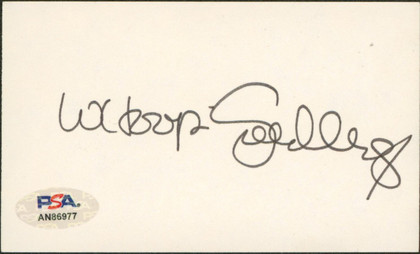 Whoopi Goldberg
PSA
AN86977